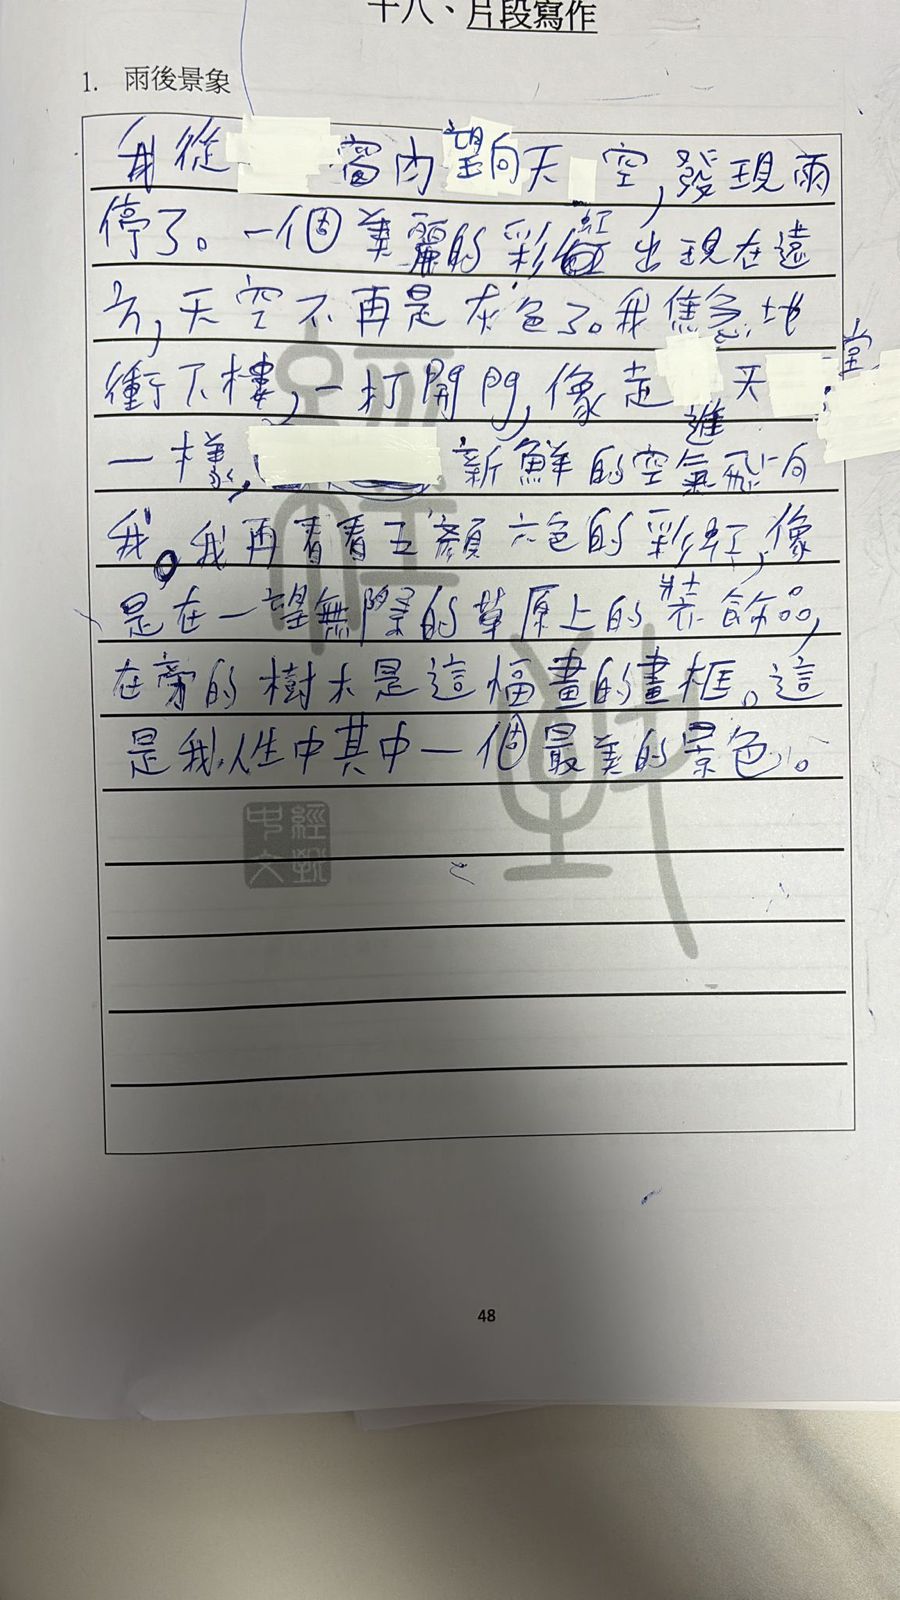 十八、片段寫作
1. 雨後景象
我從窗內望向天空,發現雨
停了。一個美麗的彩虹出現在遠
方,天空不再是灰色了。我焦急地
衝下樓,一打開門,像走進天堂
一樣,新鮮的空氣飛向
我。我再看看五顏六色的彩虹,像
是在一望無際的草原上的裝飾品,
在旁的樹木是這幅畫的畫框。這
是我人生中其中一個最美的景色。
48